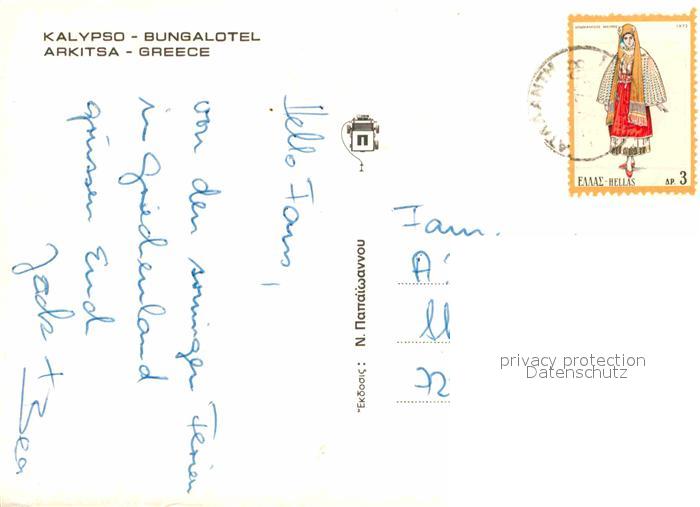 KALYPSO - BUNGALOTEL
ARKITSA - GREECE
Hello Fans,
von den sonnigen Ferien
in Griechenland
grüssen Euch
Jack + Bea
Π
Ἔκδοσις: Ν. Παπαϊωάννου
1972
ΕΛΛΑΣ-HELLAS ΔΡ. 3
ΑΤΑΛΑΝΤΗ
Fam.
A
72
privacy protection
Datenschutz